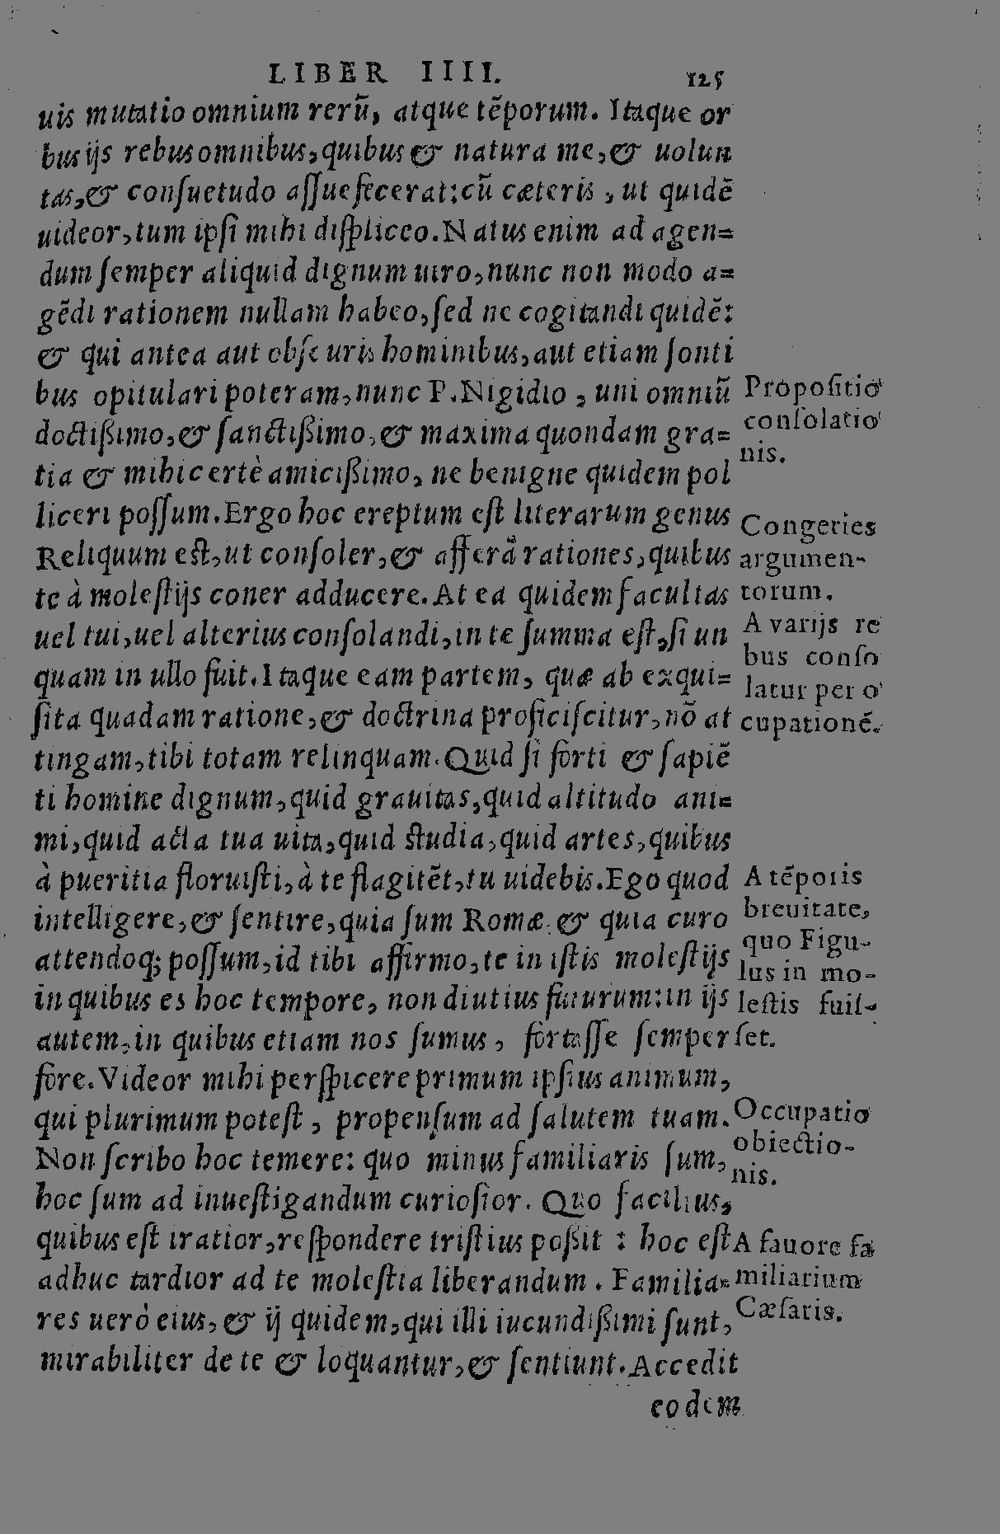 LIBER IIII. 125
uis mutatio omnium rerũ, atque tẽporum. Itaque or
bus ijs rebus omnibus, quibus & natura me, & uolun
tas, & conſuetudo aſſuefecerat: cũ cæteris, ut quidẽ
uideor, tum ipſi mihi diſpliceo. Natus enim ad agen=
dum ſemper aliquid dignum uiro, nunc non modo a=
gẽdi rationem nullam habeo, ſed ne cogitandi quidẽ:
& qui antea aut obſcuris hominibus, aut etiam ſonti
bus opitulari poteram, nunc P. Nigidio, uni omniũ
doctißimo, & ſanctißimo, & maxima quondam gra=
tia & mihi certè amicißimo, ne benigne quidem pol
liceri poſſum. Ergo hoc ereptum eſt literarum genus
Reliquum eſt, ut conſoler, & afferã rationes, quibus
te à moleſtijs coner adducere. At ea quidem facultas
uel tui, uel alterius conſolandi, in te ſumma eſt, ſi un
quam in ullo fuit. Itaque eam partem, quæ ab exqui=
ſita quadam ratione, & doctrina proficiſcitur, nõ at
tingam, tibi totam relinquam. Quid ſi forti & ſapiẽ
ti homine dignum, quid grauitas, quid altitudo ani=
mi, quid acta tua uita, quid ſtudia, quid artes, quibus
à pueritia floruiſti, à te flagitẽt, tu uidebis. Ego quod
intelligere, & ſentire, quia ſum Romæ. & quia curo
attendoq; poſſum, id tibi affirmo, te in iſtis moleſtijs
in quibus es hoc tempore, non diutius futurum: in ijs
autem, in quibus etiam nos ſumus, fortaſſe ſemper
fore. Videor mihi perſpicere primum ipſius animum,
qui plurimum poteſt, propenſum ad ſalutem tuam.
Non ſcribo hoc temere: quo minus familiaris ſum,
hoc ſum ad inueſtigandum curioſior. Quo facilius,
quibus eſt iratior, reſpondere triſtius poßit: hoc eſt
adhuc tardior ad te moleſtia liberandum. Familia=
res uerò eius, & ij quidem, qui illi iucundißimi ſunt,
mirabiliter de te & loquantur, & ſentiunt. Accedit
eodem
Propoſitio
conſolatio
nis.
Congeries
argumen-
torum.
A varijs re
bus conſo
latur per o
cupationẽ.
A tẽporis
breuitate,
quo Figu-
lus in mo-
leſtis fuiſ-
ſet.
Occupatio
obiectio-
nis.
A fauore fa
miliarium
Cæſaris.